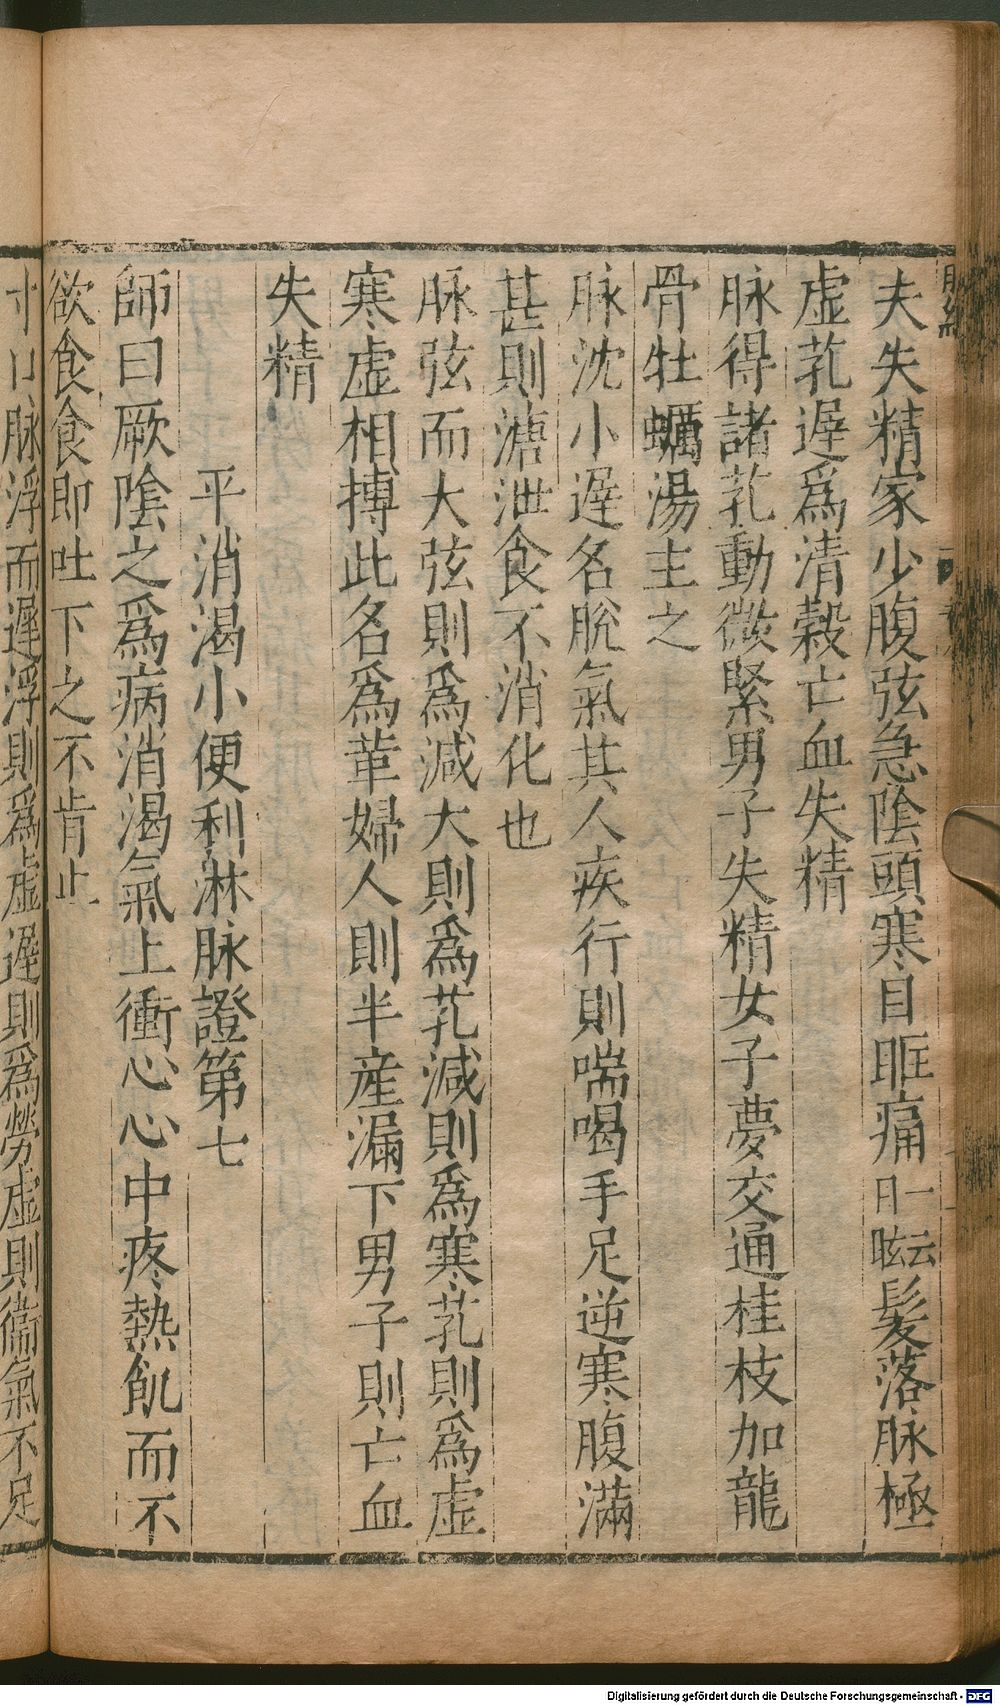 脉經
夫失精家少腹弦急陰頭寒目眶痛一云目眩髮落脉極
虛芤遲爲清穀亡血失精
脉得諸芤動微緊男子失精女子夢交通桂枝加龍
骨牡蠣湯主之
脉沈小遲名脫氣其人疾行則喘喝手足逆寒腹滿
甚則溏泄食不消化也
脉弦而大弦則爲減大則爲芤減則爲寒芤則爲虛
寒虛相搏此名爲革婦人則半産漏下男子則亡血
失精
平消渴小便利淋脉證第七
師曰厥陰之爲病消渴氣上衝心心中疼熱飢而不
欲食食即吐下之不肯止
寸口脉浮而遲浮則爲虛遲則爲勞虛則衞氣不足
Digitalisierung gefördert durch die Deutsche Forschungsgemeinschaft - DFG